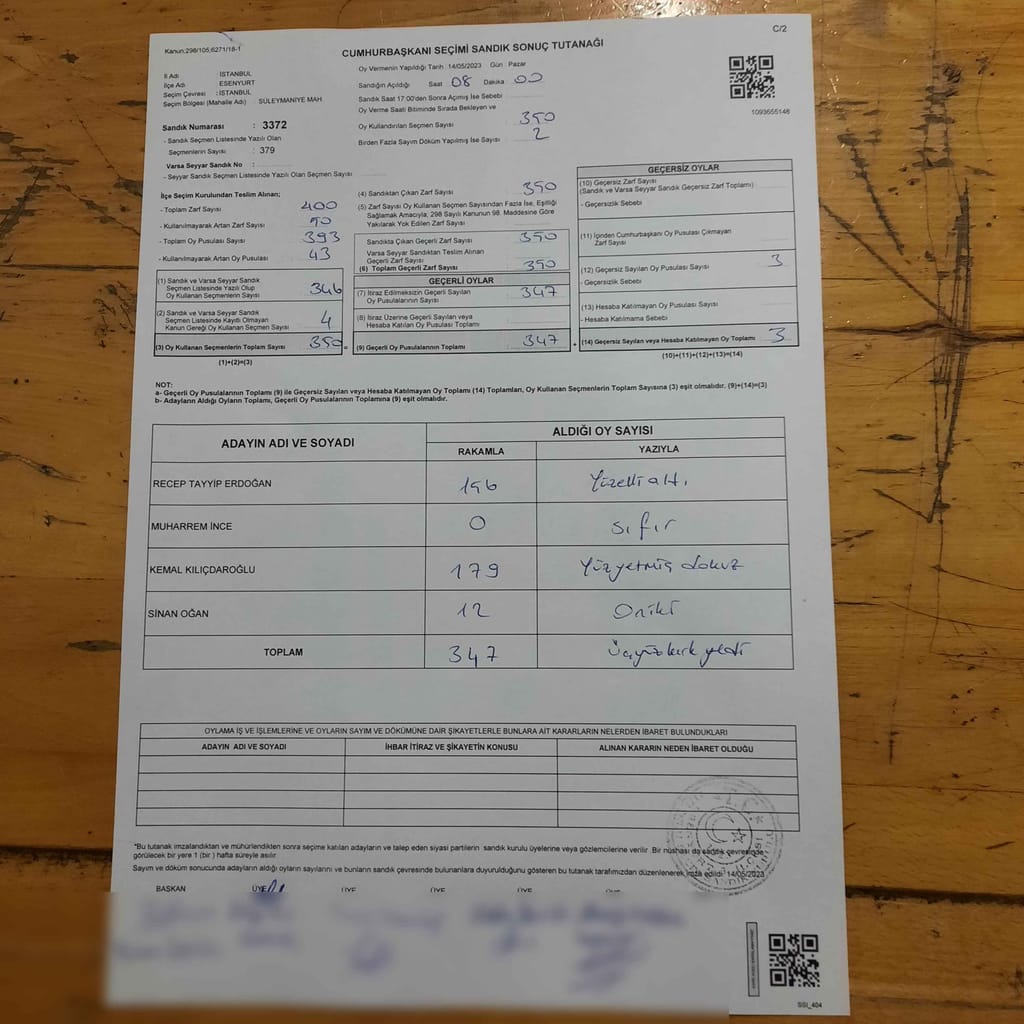 Kanun;298/105;6271/18-1
C/2
CUMHURBAŞKANI SEÇİMİ SANDIK SONUÇ TUTANAĞI
İl Adı : İSTANBUL
İlçe Adı : ESENYURT
Seçim Çevresi : İSTANBUL
Seçim Bölgesi (Mahalle Adı) : SÜLEYMANİYE MAH
Sandık Numarası : 3372
- Sandık Seçmen Listesinde Yazılı Olan
Seçmenlerin Sayısı : 379
Varsa Seyyar Sandık No :
- Seyyar Sandık Seçmen Listesinde Yazılı Olan Seçmen Sayısı
Oy Vermenin Yapıldığı Tarih :14/05/2023 Gün : Pazar
Sandığın Açıldığı Saat 08 Dakika 00
Sandık Saat 17.00'den Sonra Açımış İse Sebebi
Oy Verme Saati Bitiminde Sırada Bekleyen ve
Oy Kullandırılan Seçmen Sayısı 350
Birden Fazla Sayım Döküm Yapılmış İse Sayısı 2
1093655148
İlçe Seçim Kurulundan Teslim Alınan;
- Toplam Zarf Sayısı 400
- Kullanılmayarak Artan Zarf Sayısı 50
- Toplam Oy Pusulası Sayısı 393
- Kullanılmayarak Artan Oy Pusulası 43
(1) Sandık ve Varsa Seyyar Sandık
Seçmen Listesinde Yazılı Olup
Oy Kullanan Seçmenlerin Sayısı 346
(2) Sandık ve Varsa Seyyar Sandık
Seçmen Listesinde Kayıtlı Olmayan
Kanun Gereği Oy Kullanan Seçmen Sayısı 4
(3) Oy Kullanan Seçmenlerin Toplam Sayısı 350 =
(1)+(2)=(3)
(4) Sandıktan Çıkan Zarf Sayısı 350
(5) Zarf Sayısı Oy Kullanan Seçmen Sayısından Fazla İse, Eşitliği
Sağlamak Amacıyla, 298 Sayılı Kanunun 98. Maddesine Göre
Yakılarak Yok Edilen Zarf Sayısı
Sandıkta Çıkan Geçerli Zarf Sayısı 350
Varsa Seyyar Sandıktan Teslim Alınan
Geçerli Zarf Sayısı
(6) Toplam Geçerli Zarf Sayısı 350
GEÇERLİ OYLAR
(7) İtiraz Edilmeksizin Geçerli Sayılan
Oy Pusulalarının Sayısı 347
(8) İtiraz Üzerine Geçerli Sayılan veya
Hesaba Katılan Oy Pusulaları Toplamı
(9) Geçerli Oy Pusulalarının Toplamı 347 +
GEÇERSİZ OYLAR
(10) Geçersiz Zarf Sayısı
(Sandık ve Varsa Seyyar Sandık Geçersiz Zarf Toplamı)
- Geçersizlik Sebebi
(11) İçinden Cumhurbaşkanı Oy Pusulası Çıkmayan
Zarf Sayısı
(12) Geçersiz Sayılan Oy Pusulası Sayısı 3
- Geçersizlik Sebebi
(13) Hesaba Katılmayan Oy Pusulası Sayısı
- Hesaba Katılmama Sebebi
(14) Geçersiz Sayılan veya Hesaba Katılmayan Oy Toplamı 3
(10)+(11)+(12)+(13)=(14)
NOT:
a- Geçerli Oy Pusulalarının Toplamı (9) ile Geçersiz Sayılan veya Hesaba Katılmayan Oy Toplamı (14) Toplamları, Oy Kullanan Seçmenlerin Toplam Sayısına (3) eşit olmalıdır. (9)+(14)=(3)
b- Adayların Aldığı Oyların Toplamı, Geçerli Oy Pusulalarının Toplamına (9) eşit olmalıdır.
ADAYIN ADI VE SOYADI
ALDIĞI OY SAYISI
RAKAMLA YAZIYLA
RECEP TAYYİP ERDOĞAN 156 Yüzelli altı
MUHARREM İNCE 0 sıfır
KEMAL KILIÇDAROĞLU 179 Yüzyetmiş dokuz
SİNAN OĞAN 12 Oniki
TOPLAM 347 Üçyüzkırkyedi
OYLAMA İŞ VE İŞLEMLERİNE VE OYLARIN SAYIM VE DÖKÜMÜNE DAİR ŞİKAYETLERLE BUNLARA AİT KARARLARIN NELERDEN İBARET BULUNDUKLARI
ADAYIN ADI VE SOYADI İHBAR İTİRAZ VE ŞİKAYETİN KONUSU ALINAN KARARIN NEDEN İBARET OLDUĞU
*Bu tutanak imzalandıktan ve mühürlendikten sonra seçime katılan adayların ve talep eden siyasi partilerin sandık kurulu üyelerine veya gözlemcilerine verilir .Bir nüshası da sandık çevresinde
görülecek bir yere 1 (bir ) hafta süreyle asılır.
Sayım ve döküm sonucunda adayların aldığı oyların sayılarını ve bunların sandık çevresinde bulunanlara duyurulduğunu gösteren bu tutanak tarafımızdan düzenlenerek imza edildi. 14/05/2023
BAŞKAN ÜYE ÜYE ÜYE ÜYE
SSI_404